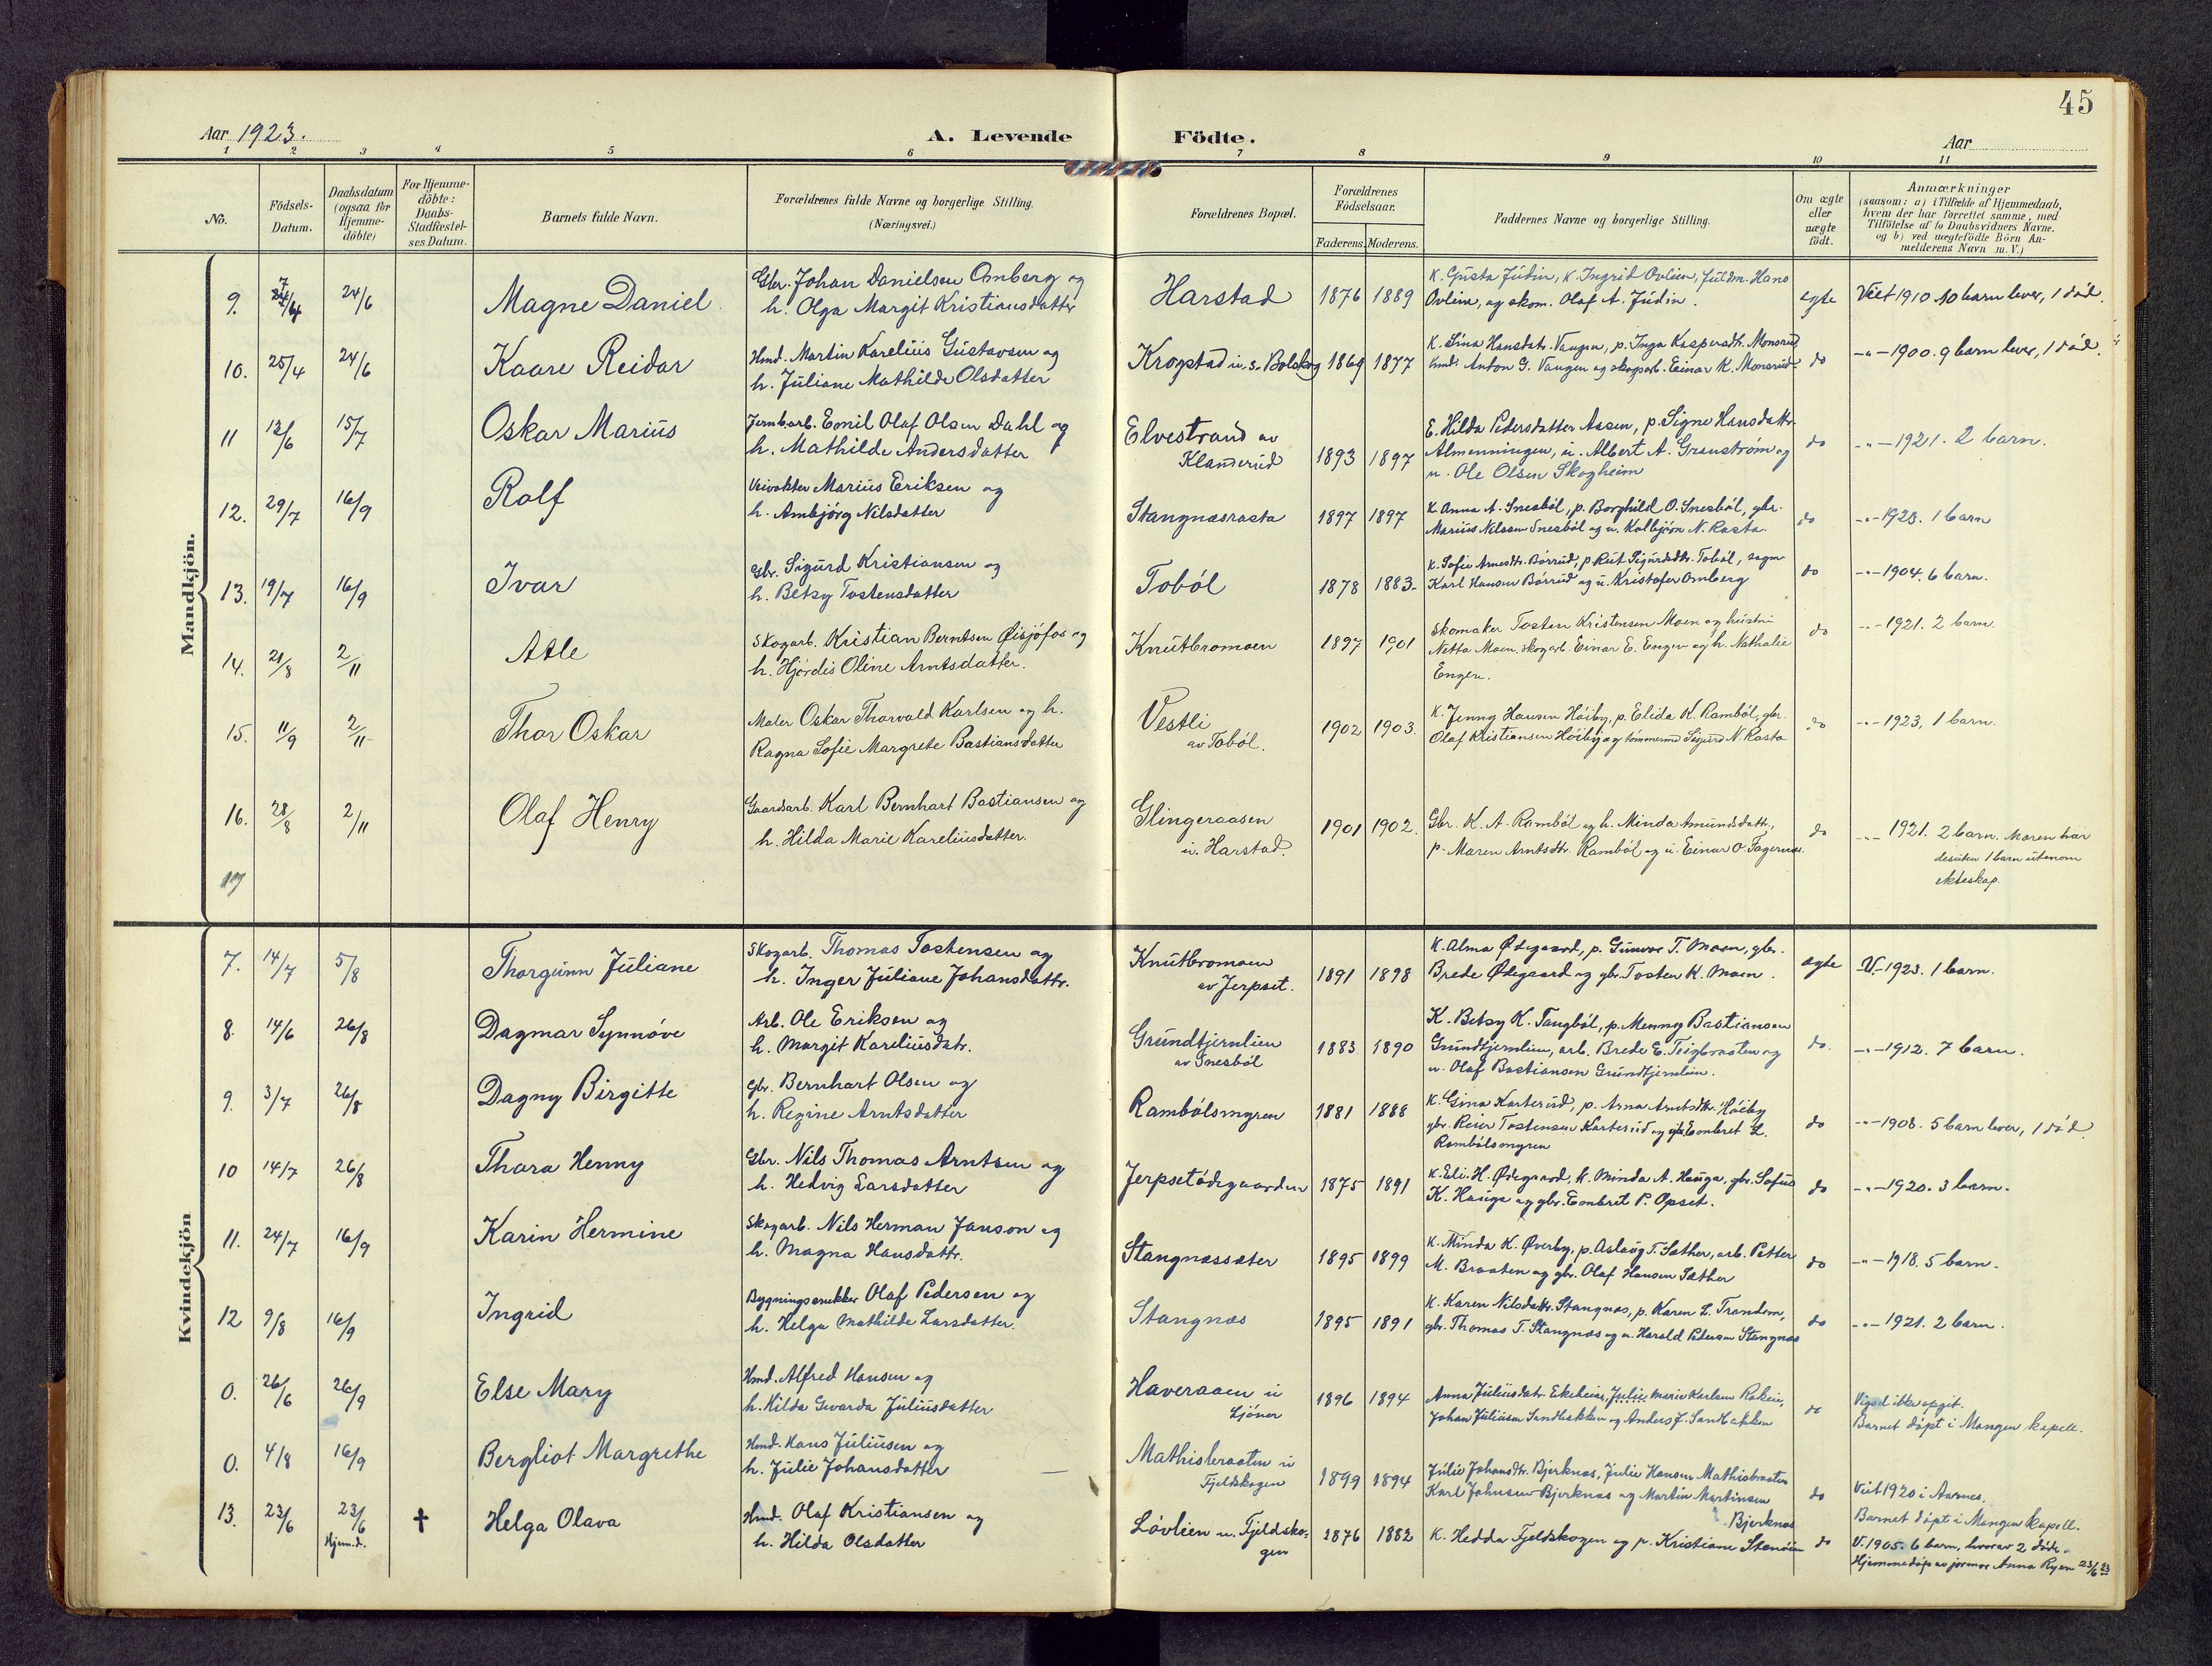 45
Aar 1923.
A. Levende Födte.
Aar
1 2 3 4 5 6 7 8 9 10 11
No.
Födsels-
Datum.
Daabsdatum
(ogsaa for
Hjemme-
döbte)
For Hjemme-
döbte:
Daabs-
Stadfæstel-
ses Datum.
Barnets fulde Navn.
Forældrenes fulde Navne og borgerlige Stilling.
(Næringsvei.)
Forældrenes Bopæl.
Forældrenes
Födselsaar.
Faderens. Moderens.
Faddernes Navne og borgerlige Stilling.
Om ægte
eller
uægte
födt.
Anmærkninger
(saasom: a) i Tilfælde af Hjemmedaab,
hvem der har forrettet samme, med
Tilföielse af to Daabsvidners Navne.
og b) ved uægtefödte Börn An-
melderens Navn m. V.)
Mandkjön.
9. 7/4 24/6 Magne Daniel
Gbr. Johan Danielsen Omberg og
h. Olga Margit Kristiansdatter
Harstad 1876 1889
K. Gusta Judin, K. Ingrid Ovlien, fuldm. Hans
Ovlien, og skom. Olaf A. Judin.
egte
Viet 1910 10 barn lever, 1 död.
10. 25/4 24/6 Kaare Reidar
Hmd. Martin Karelius Gustavsen og
h. Juliane Mathilde Olsdatter
Krogstad u. s. Bolskog 1869 1877
K. Sina Hansdatr. Vangen, p. Inga Kaspersdtr. Monsrud,
hmd. Anton G. Vangen og skogarb. Einar K. Monsrud
do
-"- 1900. 9 barn lever, 1 död.
11 12/6 15/7 Oskar Marius
Jernb.arb. Emil Olaf Olsen Dahl og
h. Mathilde Andersdatter
Elvestrand av
Klanderud 1893 1897
E. Hilda Pedersdatter Aasen, p. Signe Hansdattr.
Almenningen, u. Albert A. Granström og
u. Ole Olsen Skogheim
do
-"- 1921. 2 barn.
12. 29/7 16/9 Rolf
Veivokter Marius Eriksen og
h. Ambjörg Nilsdatter
Stangnæsrasta 1897 1897
K. Anna A. Snesböl, p. Borghild O. Snesböl, gbr.
Marius Nilsen Snesböl og u. Kolbjörn N. Rasta.
do
-"- 1923. 1 barn
13. 19/7 16/9 Ivar
Gbr. Sigurd Kristiansen og
h. Betsy Tostensdatter
Toböl 1878 1883.
K. Sofie Arnesdtr. Börrud, p. Rut Sigurdsdtr. Toböl, sagm
Karl Hansen Börrud og u. Kristofer Omberg
do
-"- 1904. 6 barn.
14. 21/8 2/11 Atle
Skogarb. Kristian Berntsen Øisjöfos og
h. Hjördis Oline Arntsdatter.
Knutbromoen 1897 1901
Skomaker Tosten Kristensen Moen og hustru
Netta Moen, skogarb. Einar E. Engen og h. Nathalie
Engen.
do
-"- 1921. 2 barn.
15. 11/9 2/11 Thor Oskar
Maler Oskar Thorvald Karlsen og h.
Ragna Sofie Margrete Bastiansdatter
Vestli
av Toböl. 1902 1903.
K. Jenny Hansen Höiby, p. Elida K. Ramböl, gbr.
Olaf Kristiansen Höiby og tömmermd Sigurd N. Rasta
do
-"- 1923, 1 barn.
16. 28/8 2/11 Olaf Henry
Gaardsarb. Karl Bernhart Bastiansen og
h. Hilda Marie Kareliusdatter.
Glingeraasen
u. Harstad. 1901 1902.
Gbr. K. A. Ramböl og h. Minda Amundsdatt.,
p. Maren Arntsdtr. Ramböl og u. Einar O. Fagernæs.
do
-"- 1921. 2 barn. Moren har
desuten 1 barn utenom
ekteskap.
17
Kvindekjön
7. 14/7 5/8 Thorgunn Juliane
Skogarb. Thomas Tostensen og
h. Inger Juliane Johansdattr.
Knutbromoen
av Jerpset. 1891 1898
K. Alma Ødegaard, p. Gunvor T. Moen, gbr.
Brede Ødegaard og gbr. Tosten K. Moen.
egte
V. 1923. 1 barn.
8. 14/6 26/8 Dagmar Synnöve
Arb. Ole Eriksen og
h. Margit Kareliusdatr.
Grundtjernlien
av Snesböl 1883 1890
K. Betsy K. Tangböl, p. Menny Bastiansen
Grundtjernlien, arb. Brede E. Teigbraaten og
u. Olaf Bastiansen Grundtjernlien.
do.
-"- 1912. 7 barn.
9. 3/7 26/8 Dagny Birgitte
Gbr. Bernhart Olsen og
h. Regine Arntsdatter
Rambölsmyren 1881 1888
K. Gina Karterud, p. Arna Arntsdtr. Höiby
gbr. Reier Tostensen Karterud og gbr. Embret L.
Rambölsmyren
do
-"- 1908. 5 barn lever, 1 död.
10 14/7 26/8 Thora Henny
Gbr. Nils Thomas Arntsen og
h. Hedvig Larsdatter
Jerpsetödegaarden 1875 1891
K. Eli H. Ødegaard, k. Minda A. Hauga, gbr. Sofus
K. Hauga og gbr. Embret P. Opset.
do
-"- 1920. 3 barn.
11. 24/7 16/9 Karin Hermine
Skogarb. Nils Herman Janson og
h. Magna Hansdattr.
Stangnæssæter 1895 1899
K. Minda K. Øverby, p. Aslaug T. Sæther, arb. Petter
M. Braaten og gbr. Olaf Hansen Sæther
do
-"- 1918. 5 barn.
12 9/8 16/9 Ingrid
Bygningssnekker Olaf Pedersen og
h. Helga Mathilde Larsdatter.
Stangnæs 1895 1891
K. Karen Nilsdattr. Stangnæs, p. Karen L. Trandem,
gbr. Thomas T. Stangnæs og u. Harald Pedersen Stangnæs
do
-"- 1921. 2 barn.
0. 26/6 26/9 Else Mary
Hmd. Alfred Hansen og
h. Hilda Gvarda Juliusdatter
Haveraaen u
Sjöner 1896 1894
Anna Juliusdatr. Ekeheien, Julie Marie Karlsen Rakeie,
Johan Juliusen Sandbakken og Anders J. Sandbakken
do
Vigsel ikke opgit.
Barnet döpt i Mangen kapell.
0. 4/8 16/9 Bergliot Margrethe
Hmd. Hans Juliusen og
h. Julie Johansdatter
Mathisbraaten u
Fjeldskogen 1899 1894
Julie Johansdtr. Bjerknæs, Julie Hansen Mathisbraaten
Karl Johnsen Bjerknæs og Martin Martinsen
Bjerknæs
do
Viet 1920 i Aarnes.
Barnet döpt i Mangen kapell.
13. 23/6 23/6 † Helga Olava
Hjem.d.
Hmd. Olaf Kristiansen og
h. Hilda Olsdatter
Lövlien u. Fjeldsko-
gen 1876 1882
K. Hedda Fjeldskogen og p. Kristiane Stenöien
do
V. 1905. 6 barn, hvorav 2 döde.
Hjemmedöpt av jormor Anna Ryen 23/6 23